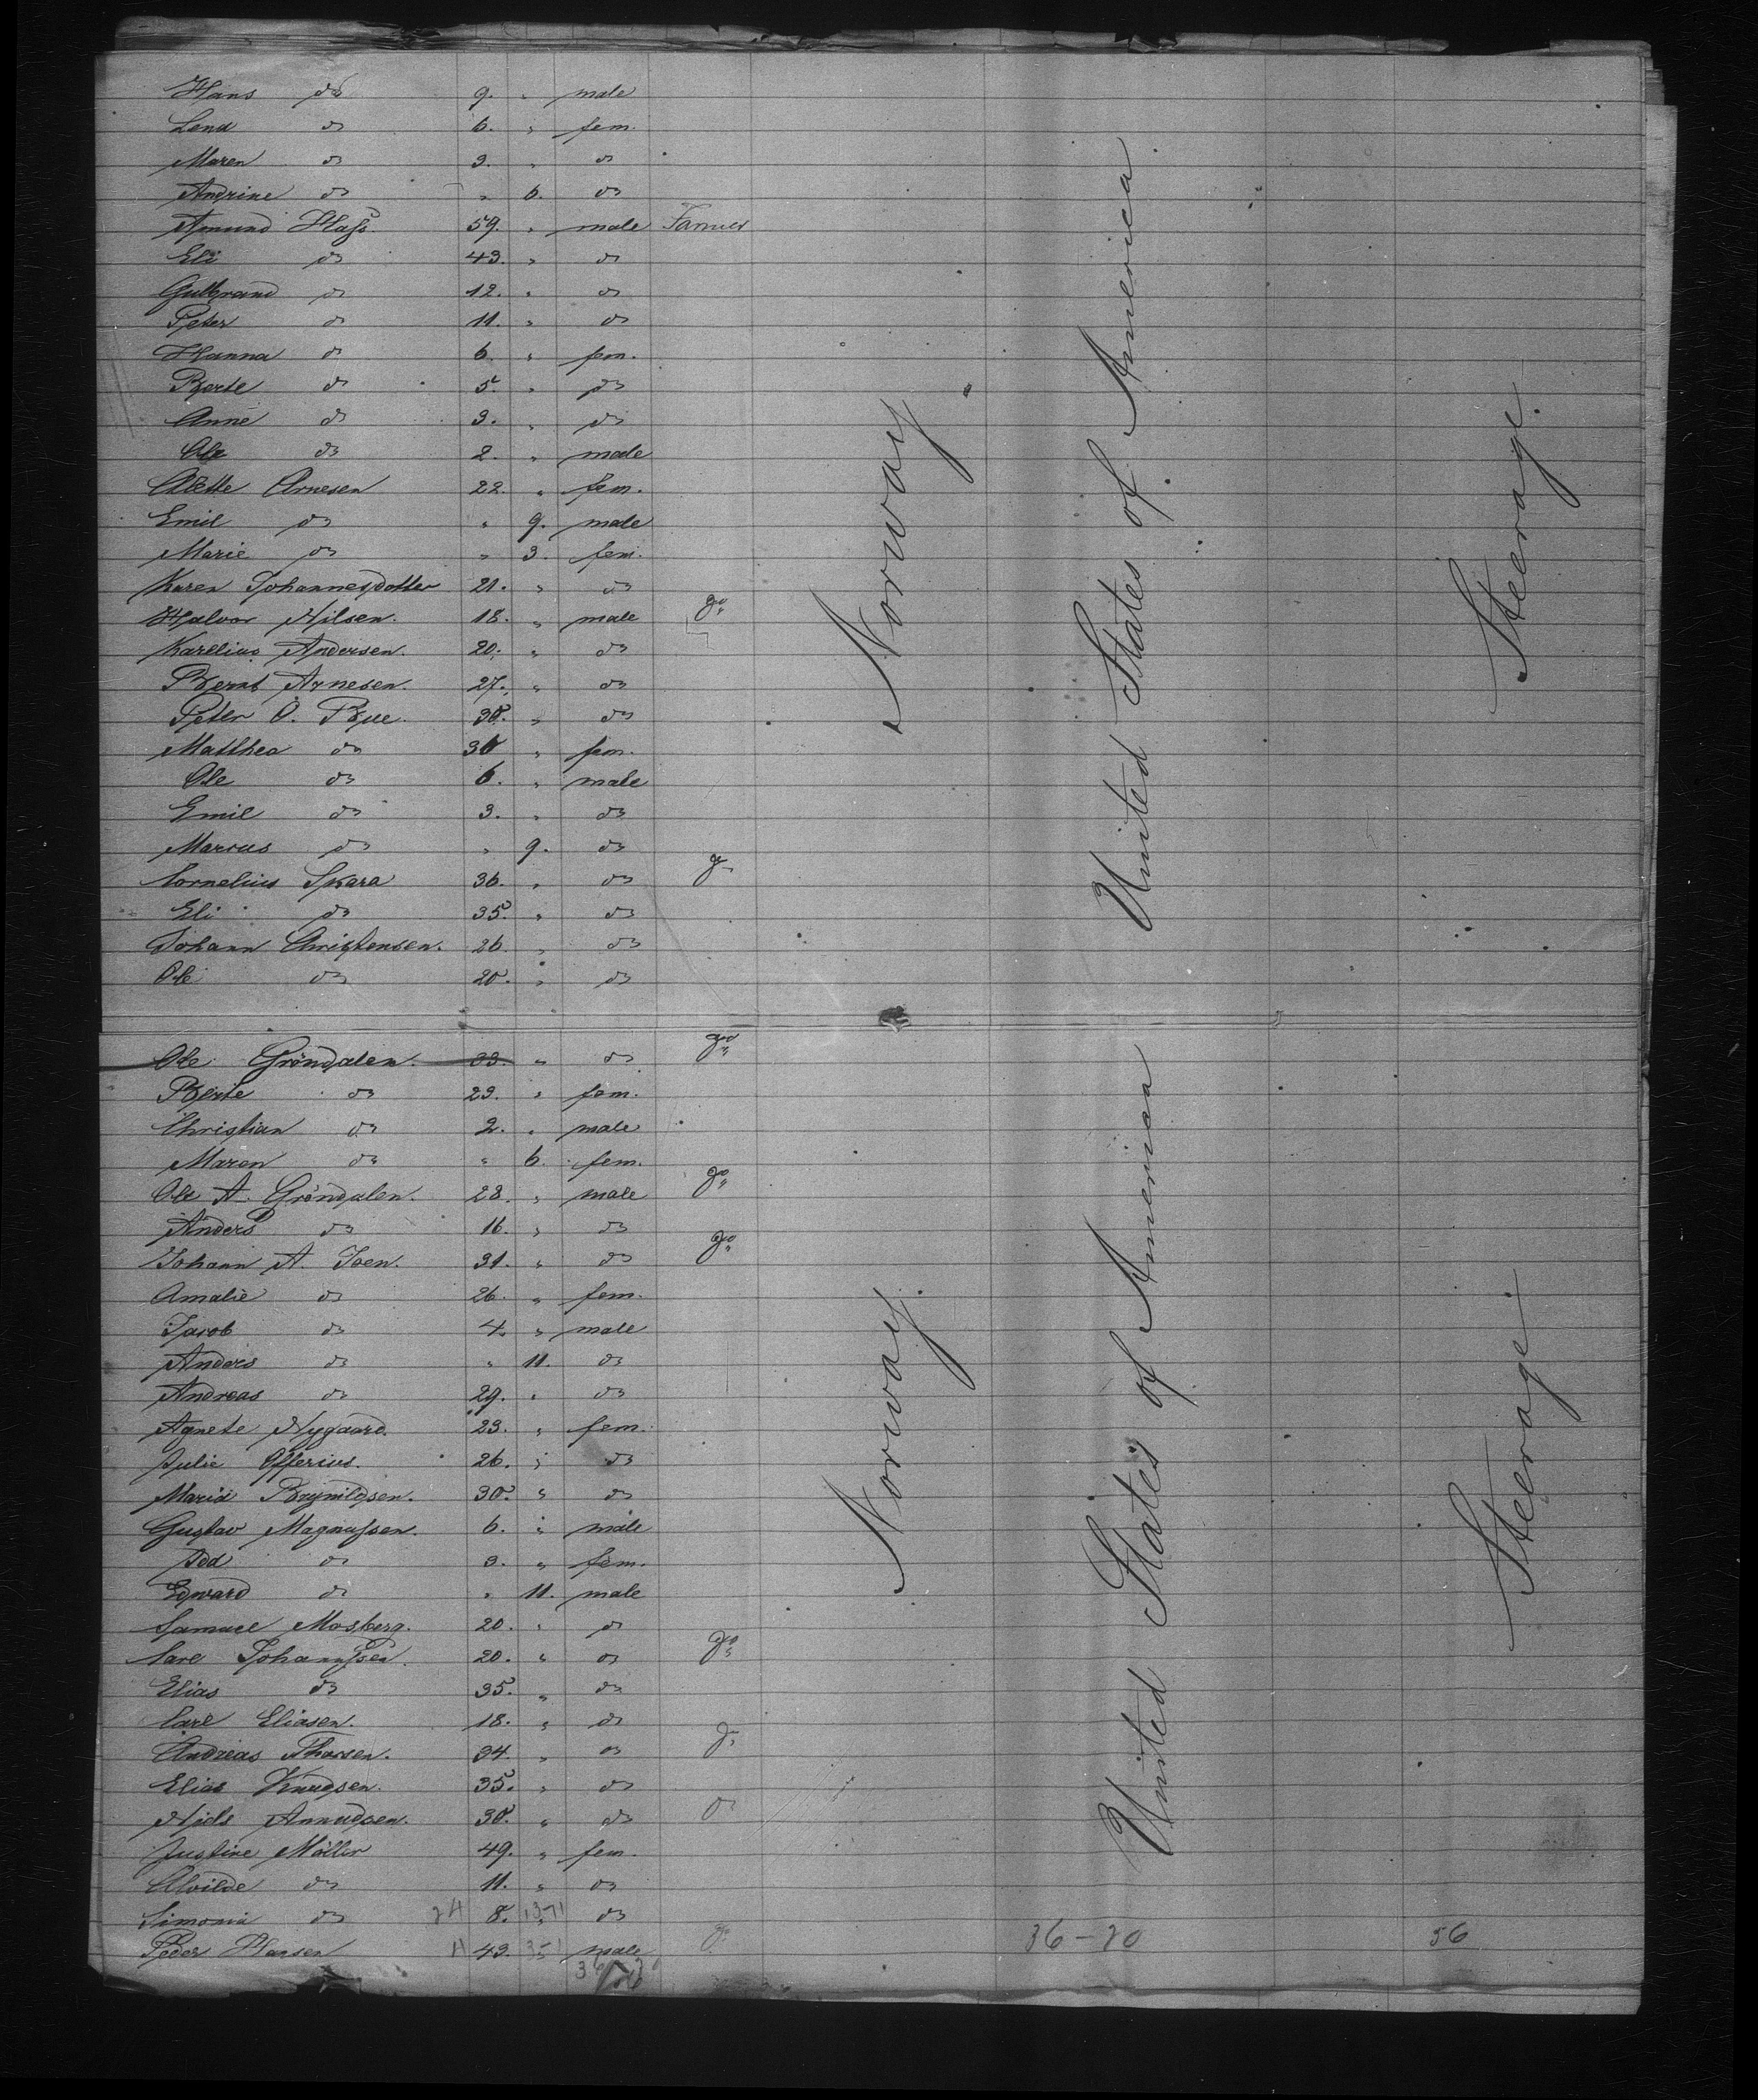 Hans do 9. " male
Lena do 6. " fem.
Maren do 3. " do
Andrine do " 6. do
Amund Hass. 59. " male Farmer
Eli do 43. " do
Gulbrand do 12. " do
Peter do 11. " do
Hanna do 6. " fem.
Berte do 5. " do
Anne do 3. " do
Ole do 2. " male
Alette Arnesen 22. " fem.
Emil do " 9. male
Marie do " 3. fem.
Karen Johannesdotter 21. " do
Halvor Nilsen. 18. " male do
Karelius Andersen. 20. " do
Bernt Arnesen. 27. " do
Peter O. Bue. 30. " do
Matthea do 30 " fem.
Ole do 6. " male
Emil do 3. " do
Marcus do " 9. do
Cornelius Skara 36. " do do
Eli do 35. " do
Johann Christensen. 26. " do
Ole do 20. " do
Norway.
United States of America
Steerage.
Ole Gröndalen. 33. " do do
Berte do 23. " fem.
Christian do 2. " male
Maren do " 6. fem.
Ole A. Gröndalen. 28. " male do
Anders do 16. " do
Johann A. Joen. 31. " do do
Amalie do 26. " fem.
Jacob do 4. " male
Anders do " 11. do
Andreas do 29. " do
Agnete Nygaard. 23. " fem.
Julie Offerius. 26. " do
Maria Brynildsen. 30. " do
Gustav Magnussen. 6. " male
Ada do 3. " fem.
Edward do " 11. male
Samuel Mosberg. 20. " do
Carl Johannssen. 20. " do do
Elias do 35. " do
Carl Eliasen. 18. " do
Andreas Thorsen. 34. " do do
Elias Knudsen. 35. " do
Niels Amundsen. 30. " do do
Justine Möller 49. " fem.
Alvilde do 11. " do
Simonia do 8. " do
Peder Hansen 43. " male do
Norway.
United States of America
Steerage.
36-20 56